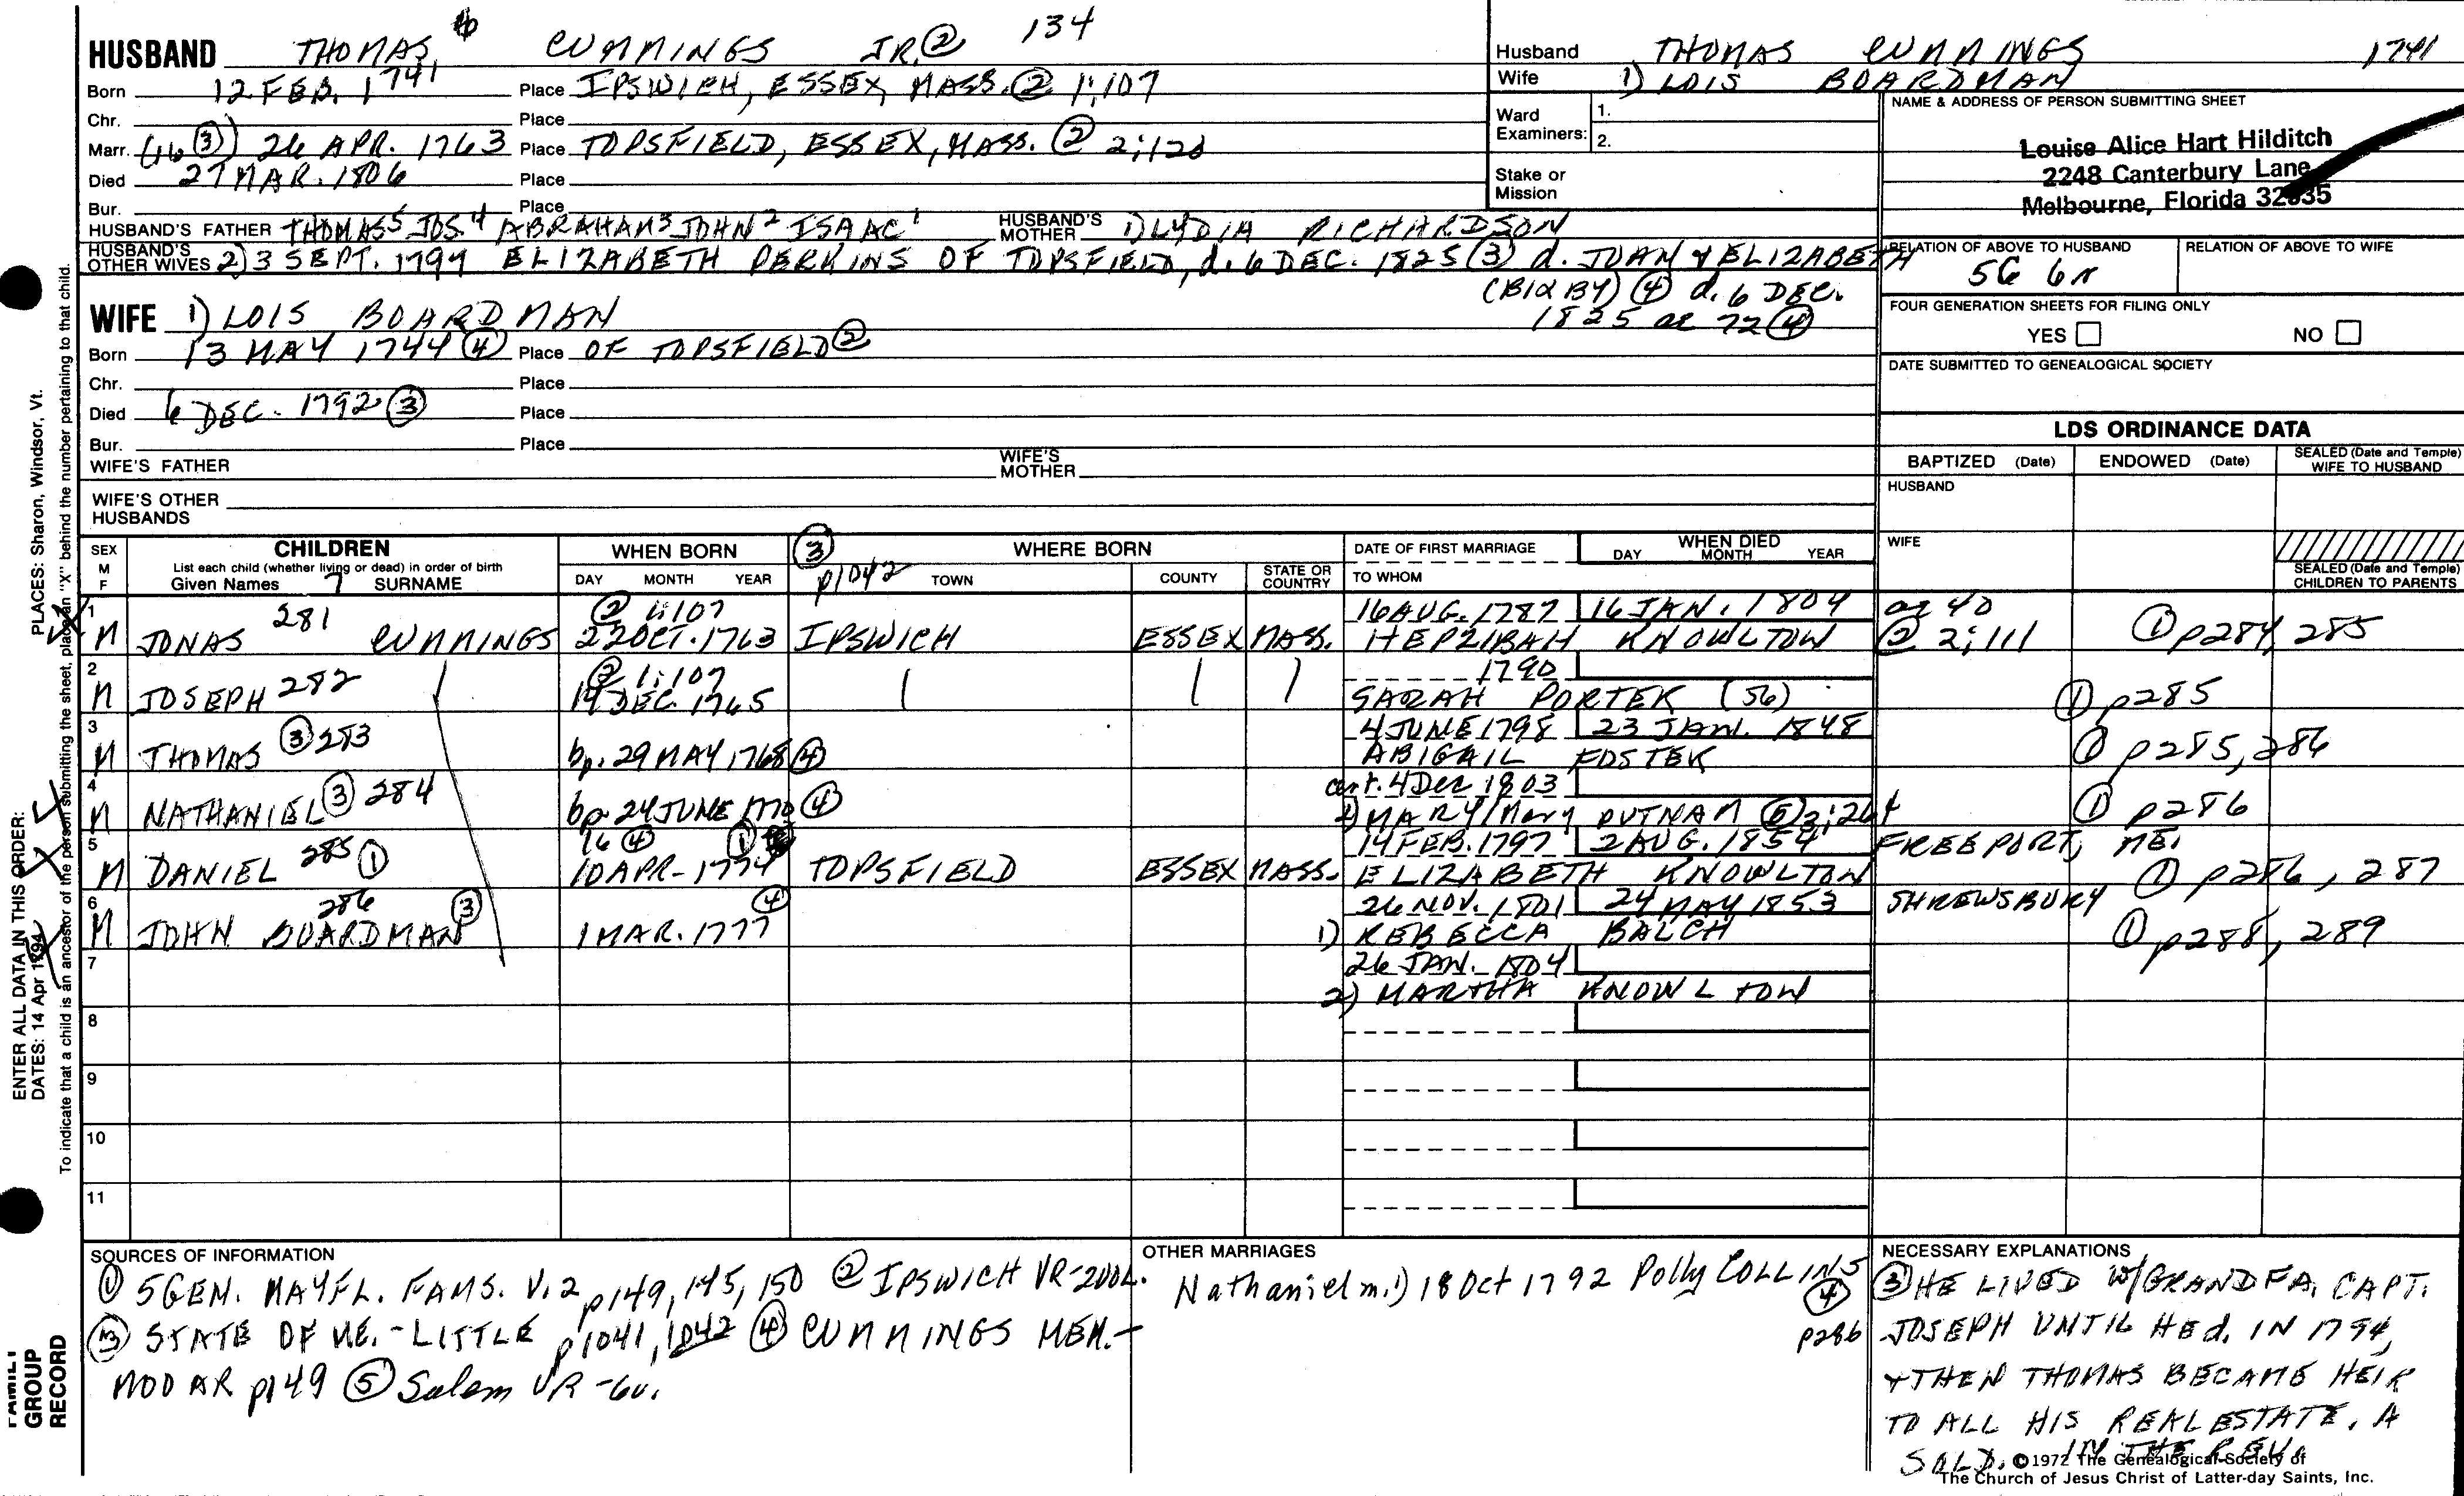 HUSBAND THOMAS 6 CUMMINGS JR. ② 134
Born 12 FEB. 1741 Place IPSWICH, ESSEX, MASS. ② 1:107
Chr. Place
Marr. (16 ③) 26 APR. 1763 Place TOPSFIELD, ESSEX, MASS. ② 2:128
Died 27 MAR. 1806 Place
Bur. Place
HUSBAND'S FATHER THOMAS 5 JOS. 4 ABRAHAM 3 JOHN 2 ISAAC 1 HUSBAND'S MOTHER 1) LYDIA RICHARDSON
HUSBAND'S OTHER WIVES 2) 3 SEPT. 1794 ELIZABETH PERKINS OF TOPSFIELD, d. 6 DEC. 1825 (3) d. JOHN & ELIZABETH
(BIXBY) ④ d. 6 DEC.
1825 ae 72 ④
WIFE 1) LOIS BOARDMAN
Born 13 MAY 1744 ④ Place OF TOPSFIELD ②
Chr. Place
Died 6 DEC. 1792 ③ Place
Bur. Place
WIFE'S FATHER WIFE'S MOTHER
WIFE'S OTHER HUSBANDS
Husband THOMAS CUMMINGS 1741
Wife 1) LOIS BOARDMAN
Ward Examiners: 1.
2.
Stake or Mission
NAME & ADDRESS OF PERSON SUBMITTING SHEET
Louise Alice Hart Hilditch
2248 Canterbury Lane
Melbourne, Florida 32935
RELATION OF ABOVE TO HUSBAND RELATION OF ABOVE TO WIFE
5G 6r
FOUR GENERATION SHEETS FOR FILING ONLY
YES NO
DATE SUBMITTED TO GENEALOGICAL SOCIETY
LDS ORDINANCE DATA
BAPTIZED (Date) ENDOWED (Date) SEALED (Date and Temple) WIFE TO HUSBAND
HUSBAND
WIFE
SEALED (Date and Temple) CHILDREN TO PARENTS
SEX M F CHILDREN WHEN BORN ③ WHERE BORN DATE OF FIRST MARRIAGE WHEN DIED
List each child (whether living or dead) in order of birth DAY MONTH YEAR
Given Names 7 SURNAME DAY MONTH YEAR p1042 TOWN COUNTY STATE OR COUNTRY TO WHOM
1 281 ② 1:107 16 AUG. 1787 16 JAN. 1804 ae 40
M JONAS CUMMINGS 22 OCT. 1763 IPSWICH ESSEX MASS. HEPZIBAH KNOWLTON ② 2:111 ① p284, 285
2 ② 1:107 1790
M JOSEPH 282 14 DEC. 1765 SARAH PORTER (56) ① p285
3 4 JUNE 1798 23 JAN. 1848
M THOMAS ③ 283 bp. 29 MAY 1768 ④ ABIGAIL FOSTER ① p285, 286
4 cert. 4 Dec 1803
M NATHANIEL ③ 284 bp. 24 JUNE 1770 ④ 2) MARY/Mary PUTNAM ⑤ 3:264 ① p286
5 16 ④ ① 14 FEB. 1797 2 AUG. 1854 FREEPORT, ME.
M DANIEL 285 ① 10 APR. 1774 TOPSFIELD ESSEX MASS. ELIZABETH KNOWLTON ① p286, 287
6 286 ④ 26 NOV. 1801 24 MAY 1853 SHREWSBURY
M JOHN BOARDMAN ③ 1 MAR. 1777 1) REBECCA BALCH ① p288, 289
7 26 JAN. 1804
2) MARTHA KNOWLTON
8
9
10
11
SOURCES OF INFORMATION
① 5 GEN. MAYFL. FAMS. V. 2 p149, 145, 150 ② IPSWICH VR-2VOL.
③ STATE OF ME.-LITTLE p1041, 1042 ④ CUMMINGS MEM.-
MOOAR p149 ⑤ Salem VR-6v.
OTHER MARRIAGES
Nathaniel m. 1) 18 Oct 1792 Polly COLLINS
④
p286
NECESSARY EXPLANATIONS
③ HE LIVED W/GRANDFA. CAPT.
JOSEPH UNTIL HE d. IN 1794,
& THEN THOMAS BECAME HEIR
TO ALL HIS REAL ESTATE. A
SOLD. IN THE REV.
©1972 The Genealogical Society of
The Church of Jesus Christ of Latter-day Saints, Inc.
ENTER ALL DATA IN THIS ORDER:
DATES: 14 Apr 1794 PLACES: Sharon, Windsor, Vt.
To indicate that a child is an ancestor of the person submitting the sheet, place an "X" behind the number pertaining to that child.
FAMILY GROUP RECORD